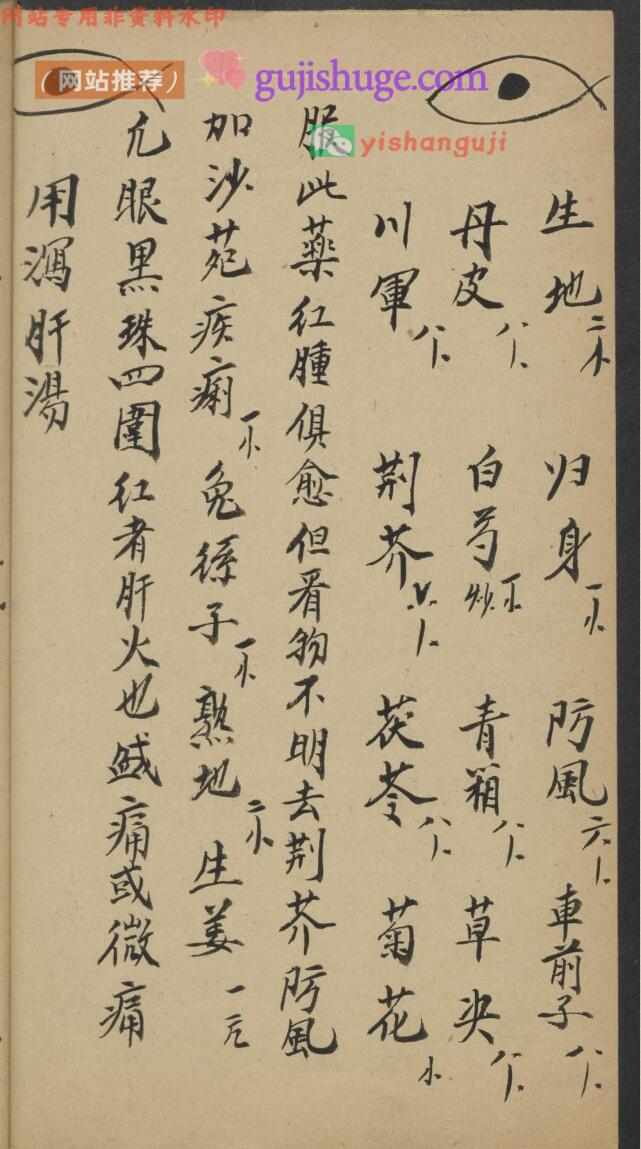 网站专用非资料水印
(网站推荐)
gujishuge.com
yishanguji
生地 二 归身 一 防風 六 車前子 八
丹皮 八 白芍 炒 青箱 八 草决 八
川軍 八 荆芥 茯苓 八 菊花
服此薬红腫俱愈但看物不明去荆芥防風
加沙苑疾痢 一 兔絲子 一 熟地 二 生姜 一
凢眼黒珠四圍红者肝火也 痛或微痛
用瀉肝湯